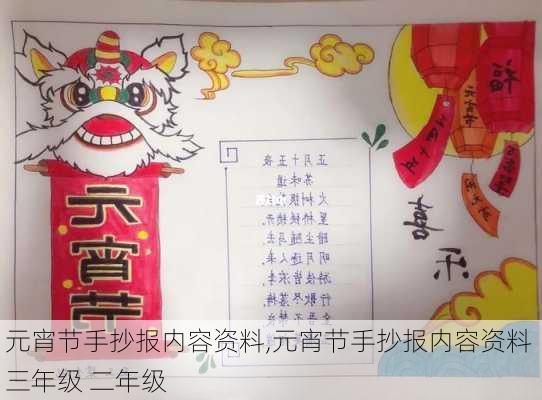 元宵节
正月十五夜
苏味道
火树银
星桥铁锁开。
暗尘随马去,
明月逐人来。
游伎皆秾李,
行歌尽落梅,
金吾不禁
福
元宵节
正月十五
乐
元宵节手抄报内容资料,元宵节手抄报内容资料
三年级 二年级